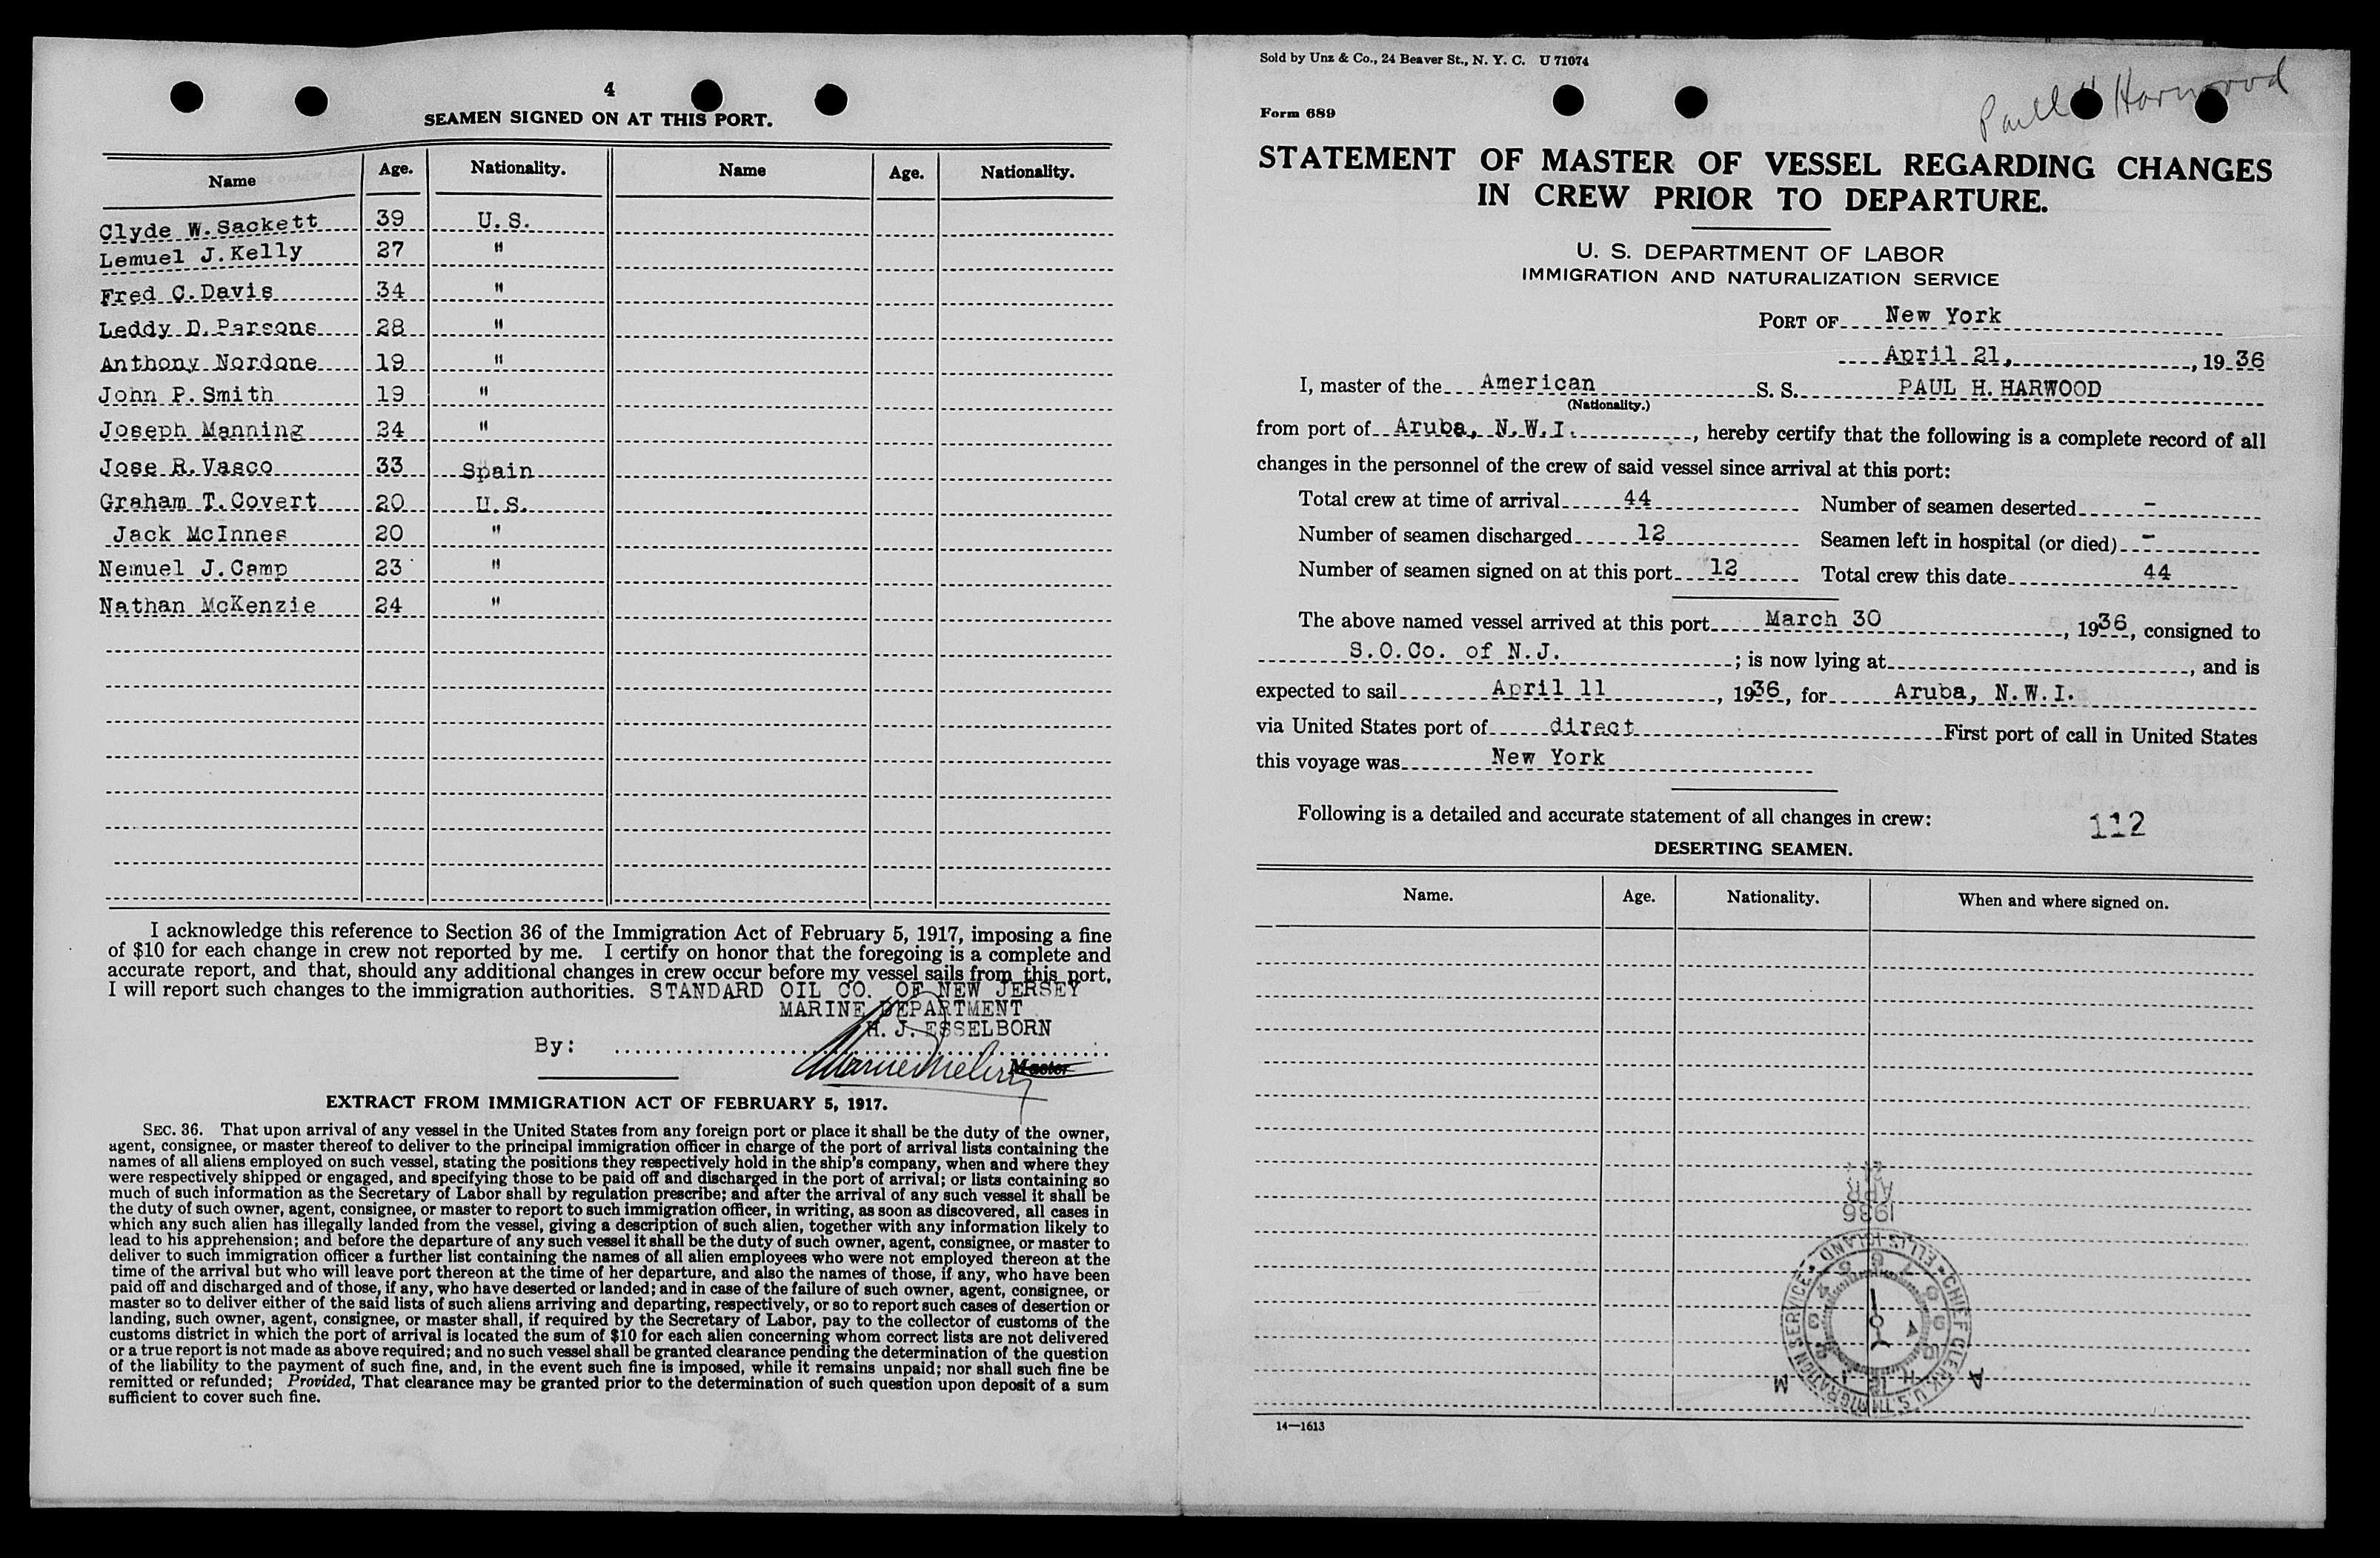 4
SEAMEN SIGNED ON AT THIS PORT.
Name Age. Nationality. Name Age. Nationality.
Clyde W. Sackett 39 U. S.
Lemuel J. Kelly 27 "
Fred C. Davis 34 "
Leddy D. Parsons 28 "
Anthony Nordone 19 "
John P. Smith 19 "
Joseph Manning 24 "
Jose R. Vasco 33 Spain
Graham T. Covert 20 U. S.
Jack McInnes 20 "
Nemuel J. Camp 23 "
Nathan McKenzie 24 "
I acknowledge this reference to Section 36 of the Immigration Act of February 5, 1917, imposing a fine
of $10 for each change in crew not reported by me. I certify on honor that the foregoing is a complete and
accurate report, and that, should any additional changes in crew occur before my vessel sails from this port,
I will report such changes to the immigration authorities. STANDARD OIL CO. OF NEW JERSEY
MARINE DEPARTMENT
H. J. ESSELBORN
By:
Master
EXTRACT FROM IMMIGRATION ACT OF FEBRUARY 5, 1917.
SEC. 36. That upon arrival of any vessel in the United States from any foreign port or place it shall be the duty of the owner,
agent, consignee, or master thereof to deliver to the principal immigration officer in charge of the port of arrival lists containing the
names of all aliens employed on such vessel, stating the positions they respectively hold in the ship's company, when and where they
were respectively shipped or engaged, and specifying those to be paid off and discharged in the port of arrival; or lists containing so
much of such information as the Secretary of Labor shall by regulation prescribe; and after the arrival of any such vessel it shall be
the duty of such owner, agent, consignee, or master to report to such immigration officer, in writing, as soon as discovered, all cases in
which any such alien has illegally landed from the vessel, giving a description of such alien, together with any information likely to
lead to his apprehension; and before the departure of any such vessel it shall be the duty of such owner, agent, consignee, or master to
deliver to such immigration officer a further list containing the names of all alien employees who were not employed thereon at the
time of the arrival but who will leave port thereon at the time of her departure, and also the names of those, if any, who have been
paid off and discharged and of those, if any, who have deserted or landed; and in case of the failure of such owner, agent, consignee, or
master so to deliver either of the said lists of such aliens arriving and departing, respectively, or so to report such cases of desertion or
landing, such owner, agent, consignee, or master shall, if required by the Secretary of Labor, pay to the collector of customs of the
customs district in which the port of arrival is located the sum of $10 for each alien concerning whom correct lists are not delivered
or a true report is not made as above required; and no such vessel shall be granted clearance pending the determination of the question
of the liability to the payment of such fine, and, in the event such fine is imposed, while it remains unpaid; nor shall such fine be
remitted or refunded; Provided, That clearance may be granted prior to the determination of such question upon deposit of a sum
sufficient to cover such fine.
Sold by Unz & Co., 24 Beaver St., N. Y. C. U 71074
Paul H Harwood
Form 689
STATEMENT OF MASTER OF VESSEL REGARDING CHANGES
IN CREW PRIOR TO DEPARTURE.
U. S. DEPARTMENT OF LABOR
IMMIGRATION AND NATURALIZATION SERVICE
PORT OF New York
April 21, , 1936
I, master of the American S. S. PAUL H. HARWOOD
(Nationality.)
from port of Aruba, N.W.I. , hereby certify that the following is a complete record of all
changes in the personnel of the crew of said vessel since arrival at this port:
Total crew at time of arrival 44 Number of seamen deserted -
Number of seamen discharged 12 Seamen left in hospital (or died) -
Number of seamen signed on at this port 12 Total crew this date 44
The above named vessel arrived at this port March 30 , 1936, consigned to
S.O.Co. of N.J. ; is now lying at , and is
expected to sail April 11 , 1936, for Aruba, N.W.I.
via United States port of direct First port of call in United States
this voyage was New York
Following is a detailed and accurate statement of all changes in crew:
112
DESERTING SEAMEN.
Name. Age. Nationality. When and where signed on.
APR
1936
CHIEF CLERK, U.S. IMMIGRATION SERVICE ELLIS ISLAND
A M
14—1613